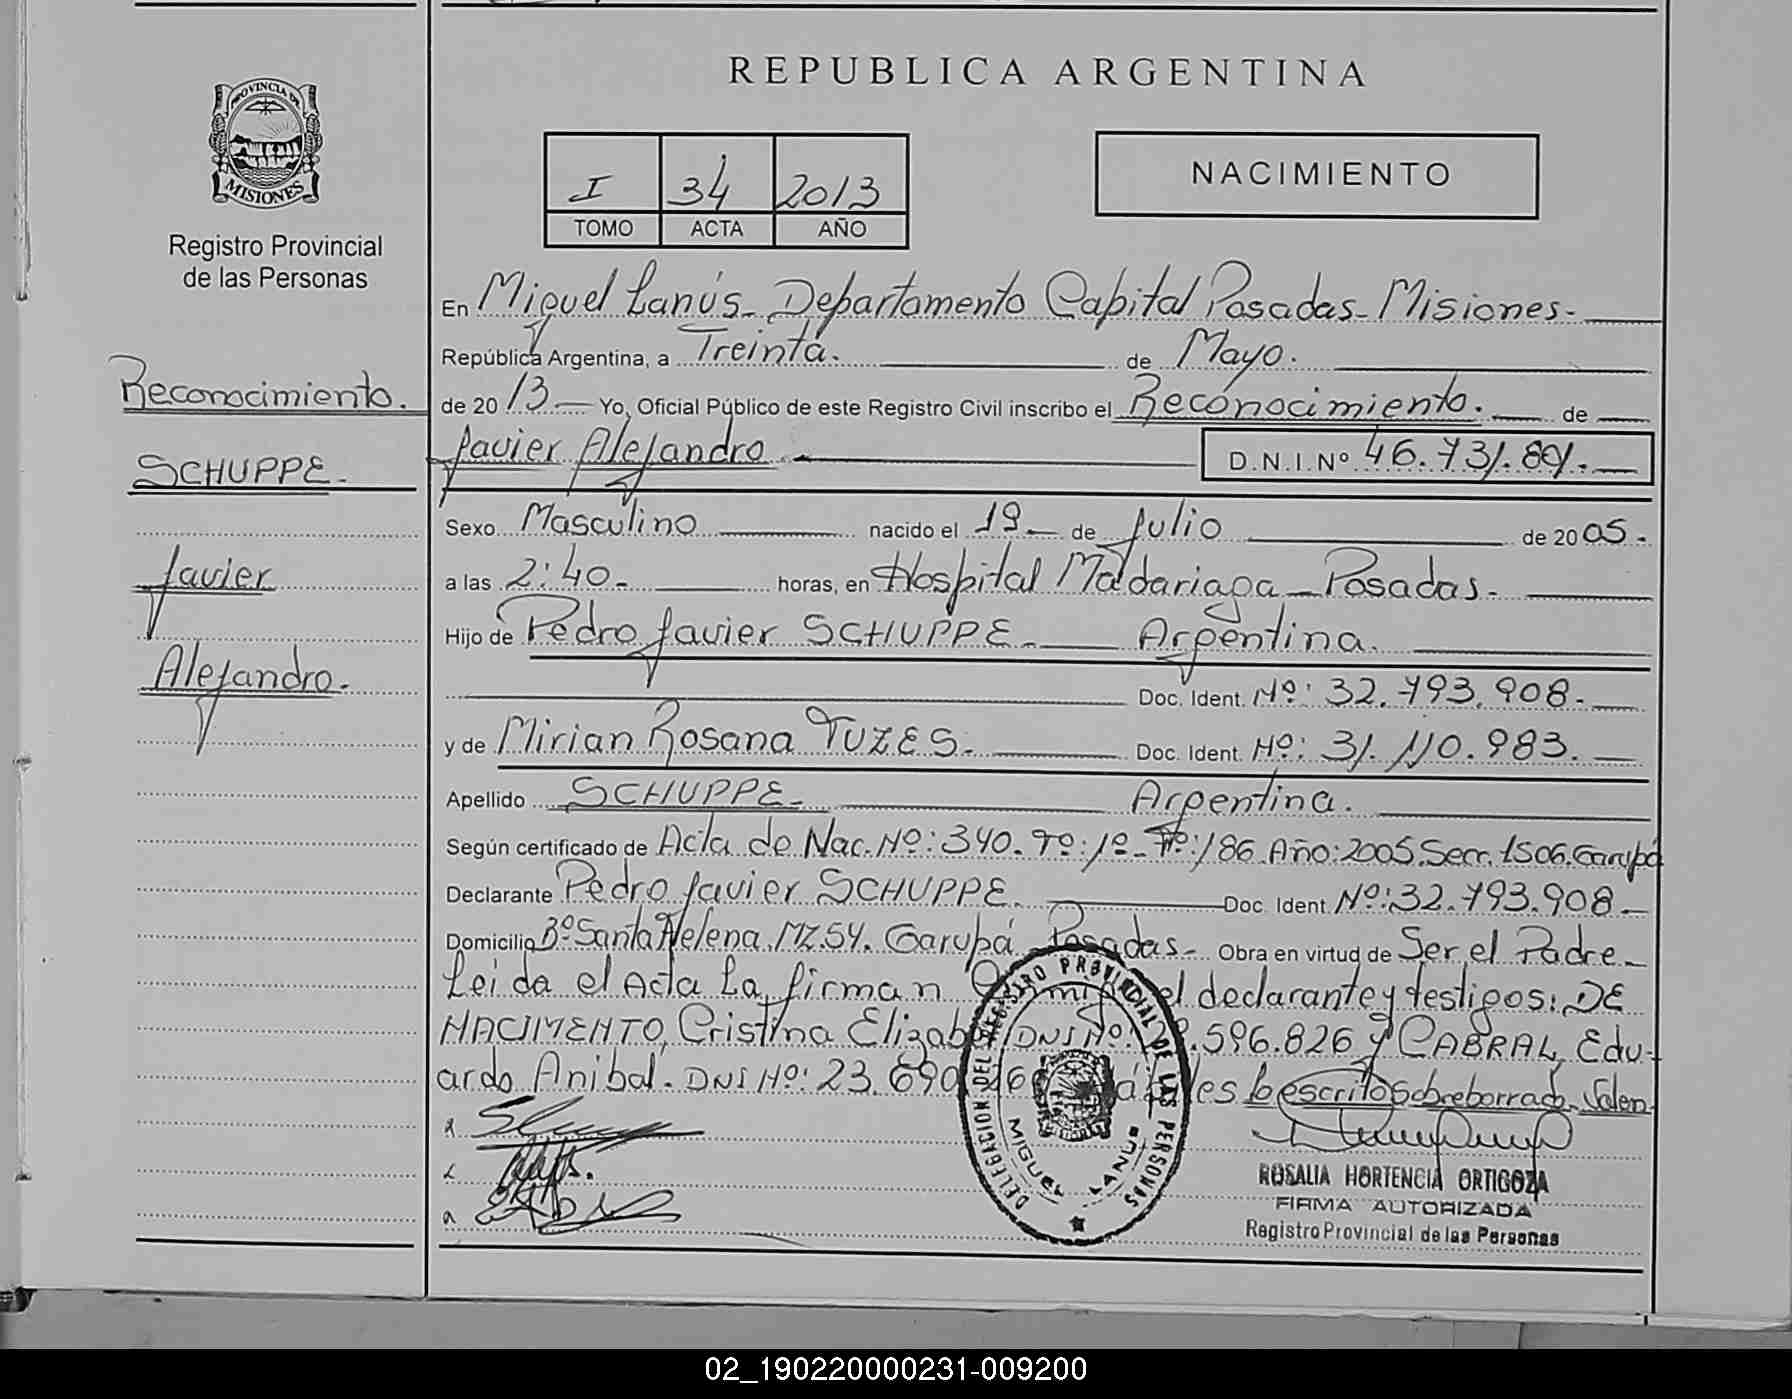 REPUBLICA ARGENTINA
PROVINCIA DE
MISIONES
Registro Provincial
de las Personas
I 34 2013
TOMO ACTA AÑO
NACIMIENTO
En Miguel Lanús - Departamento Capital Posadas - Misiones -
República Argentina, a Treinta. de Mayo.
Reconocimiento.
de 20 13 Yo, Oficial Público de este Registro Civil inscribo el Reconocimiento. de
Javier Alejandro D.N.I.Nº 46.731.
SCHUPPE -
Sexo Masculino nacido el 19 de Julio de 20 05 -
Javier
a las 2:40 - horas, en Hospital Madariaga - Posadas -
Hijo de Pedro Javier SCHUPPE - Argentina.
Alejandro -
Doc. Ident. Nº: 32.793.908 -
y de Mirian Rosana TUZES - Doc. Ident. Nº: 31.110.983.
Apellido SCHUPPE - Argentina.
Según certificado de Acta de Nac. Nº: 340. Tº: 1º - Fº: 186 Año: 2005. Secc. 1506. Garupá
Declarante Pedro Javier SCHUPPE. Doc. Ident. Nº: 32.793.908 -
Domicilio Bº Santa Helena. MZ. 54. Garupá - Posadas - Obra en virtud de Ser el Padre -
Leida el Acta La firman el declarante y testigos: DE
NACIMENTO, Cristina DNI Nº: .596.826 y CABRAL, Edu-
ardo Anibal. DNI Nº: 23.690 lo escrito sobreborrado. Valen.
DELEGACION DEL REGISTRO PROVINCIAL DE LAS PERSONAS
MIGUEL LANUS
ROSALIA HORTENCIA ORTIGOZA
FIRMA AUTORIZADA
Registro Provincial de las Personas
02_190220000231-009200